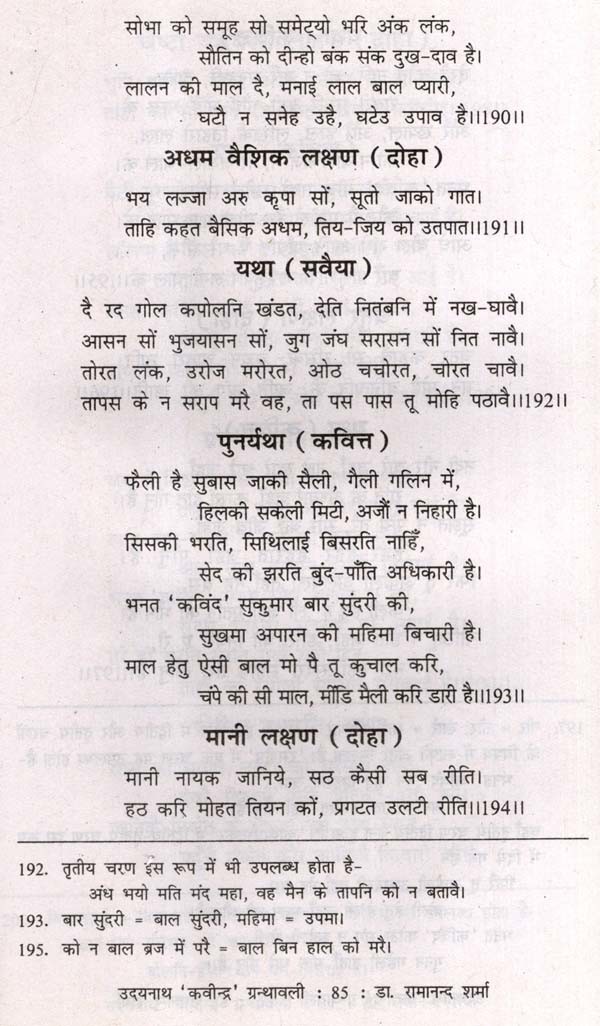 सोभा को समूह सो समेट्यो भरि अंक लंक,
सौतिन को दीन्हो बंक संक दुख-दाव है।
लालन की माल दै, मनाई लाल बाल प्यारी,
घटौ न सनेह उहै, घटेउ उपाव है।।190।।
अधम वैशिक लक्षण (दोहा)
भय लज्जा अरु कृपा सों, सूतो जाको गात।
ताहि कहत बैसिक अधम, तिय-जिय को उतपात।।191।।
यथा (सवैया)
दै रद गोल कपोलनि खंडत, देति नितंबनि में नख-घावै।
आसन सों भुजयासन सों, जुग जंघ सरासन सों नित नावै।
तोरत लंक, उरोज मरोरत, ओठ चचोरत, चोरत चावै।
तापस के न सराप मरै वह, ता पस पास तू मोहि पठावै।।192।।
पुनर्यथा (कवित्त)
फैली है सुबास जाकी सैली, गैली गलिन में,
हिलकी सकेली मिटी, अजौं न निहारी है।
सिसकी भरति, सिथिलाई बिसरति नाहिँ,
सेद की झरति बुंद-पाँति अधिकारी है।
भनत ‘कविंद’ सुकुमार बार सुंदरी की,
सुखमा अपारन की महिमा बिचारी है।
माल हेतु ऐसी बाल मो पै तू कुचाल करि,
चंपे की सी माल, मींडि मैली करि डारी है।।193।।
मानी लक्षण (दोहा)
मानी नायक जानिये, सठ कैसी सब रीति।
हठ करि मोहत तियन कों, प्रगटत उलटी रीति।।194।।
192. तृतीय चरण इस रूप में भी उपलब्ध होता है-
अंध भयो मति मंद महा, वह मैन के तापनि को न बतावै।
193. बार सुंदरी = बाल सुंदरी, महिमा = उपमा।
195. को न बाल ब्रज में परै = बाल बिन हाल को मरै।
उदयनाथ ‘कवीन्द्र’ ग्रन्थावली : 85 : डा. रामानन्द शर्मा